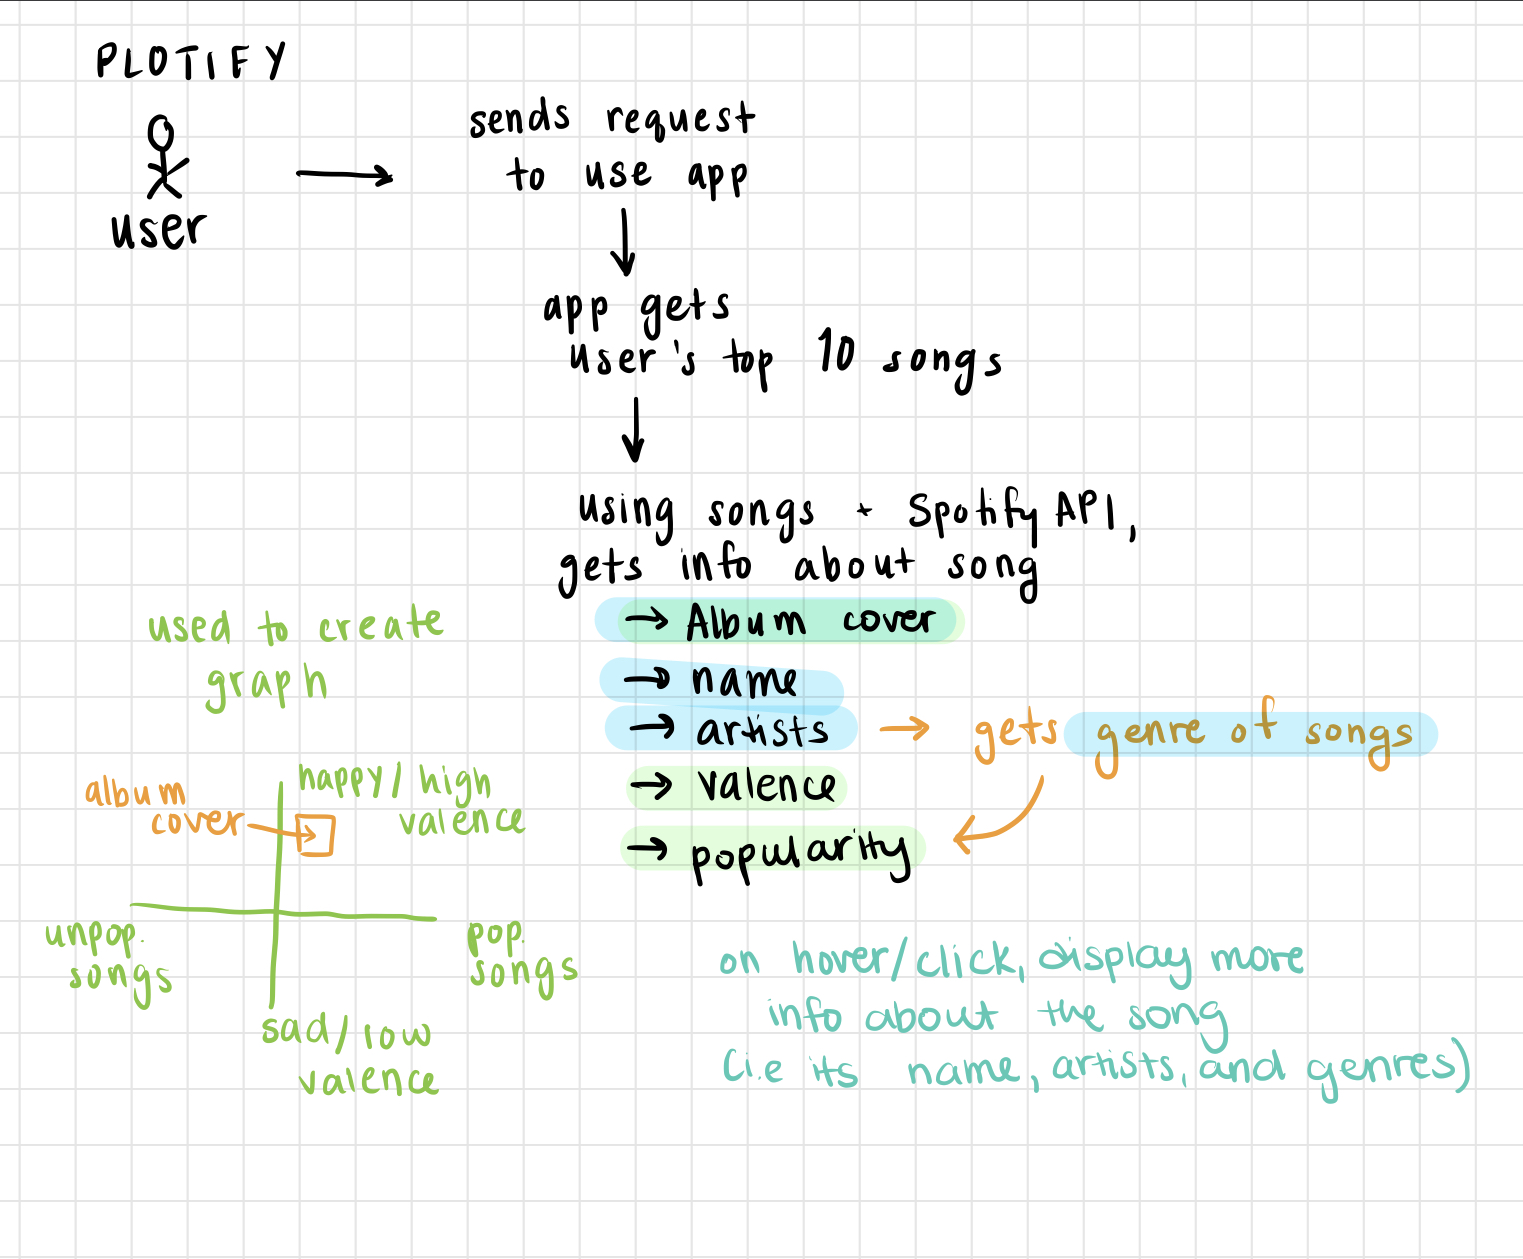 PLOTIFY
user
→ sends request
to use app
app gets
user's top 10 songs
using songs + Spotify API,
gets info about song
→ Album cover
→ name
→ artists → gets genre of songs
→ valence
→ popularity
used to create
graph
album
cover
happy/high
valence
unpop.
songs
pop.
songs
sad/low
valence
on hover/click, display more
info about the song
(i.e its name, artists, and genres)